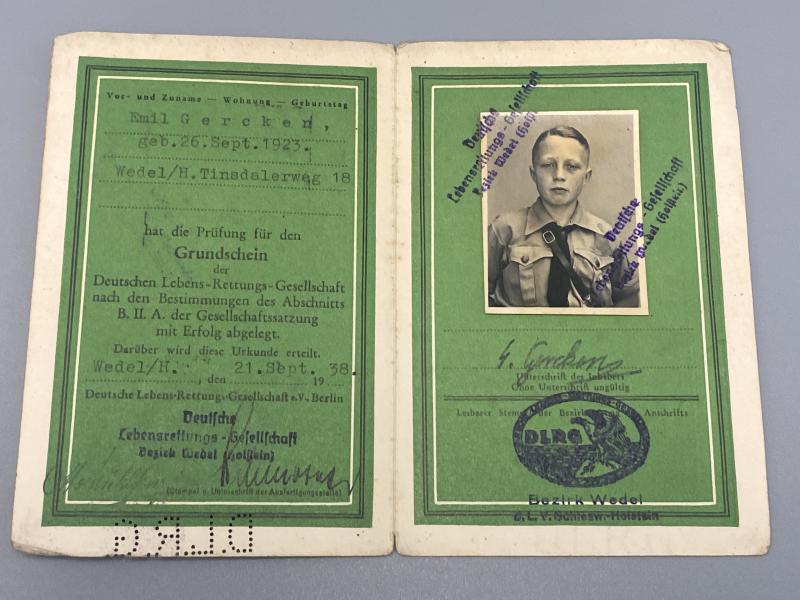 Vor- und Zuname — Wohnung — Geburtstag
Emil Gercken,
geb.26.Sept.1923.
Wedel/H.Tinsdalerweg 18
hat die Prüfung für den
Grundschein
der
Deutschen Lebens-Rettungs-Gesellschaft
nach den Bestimmungen des Abschnitts
B. II. A. der Gesellschaftssatzung
mit Erfolg abgelegt.
Darüber wird diese Urkunde erteilt.
Wedel/H. , den 21.Sept. 1938.
Deutsche Lebens-Rettungs-Gesellschaft e.V., Berlin
Deutsche
Lebensrettungs-Gesellschaft
Bezirk Wedel (Holstein)
(Stempel u. Unterschrift der Ausfertigungsstelle)
D.L.R.G.
Deutsche
Lebensrettungs-Gesellschaft
Bezirk Wedel (Holst
Deutsche
-Gesellschaft
Bezirk Wedel (Holstein)
Unterschrift des Inhabers
Ohne Unterschrift ungültig
Lesbarer Stempel der Bezirks Anschrifts
DLRG
Bezirk Wedel
d.L.V.Schlesw.-Holstein